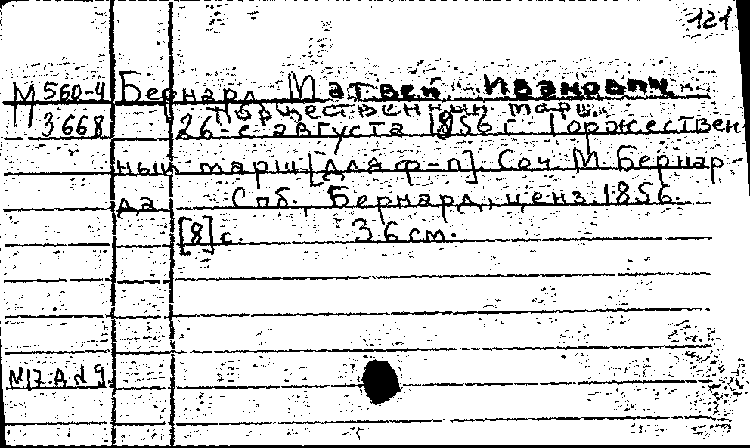 121
М 560-4 Бернард Матвей Иванович
Торжественный марш.
3668 26-е августа 1856 г. Торжествен
ный марш [для ф-п]. Соч. М. Бернар-
да Спб., Бернард, ценз. 1856.
[8] с. 36 см.
№17.А №9.